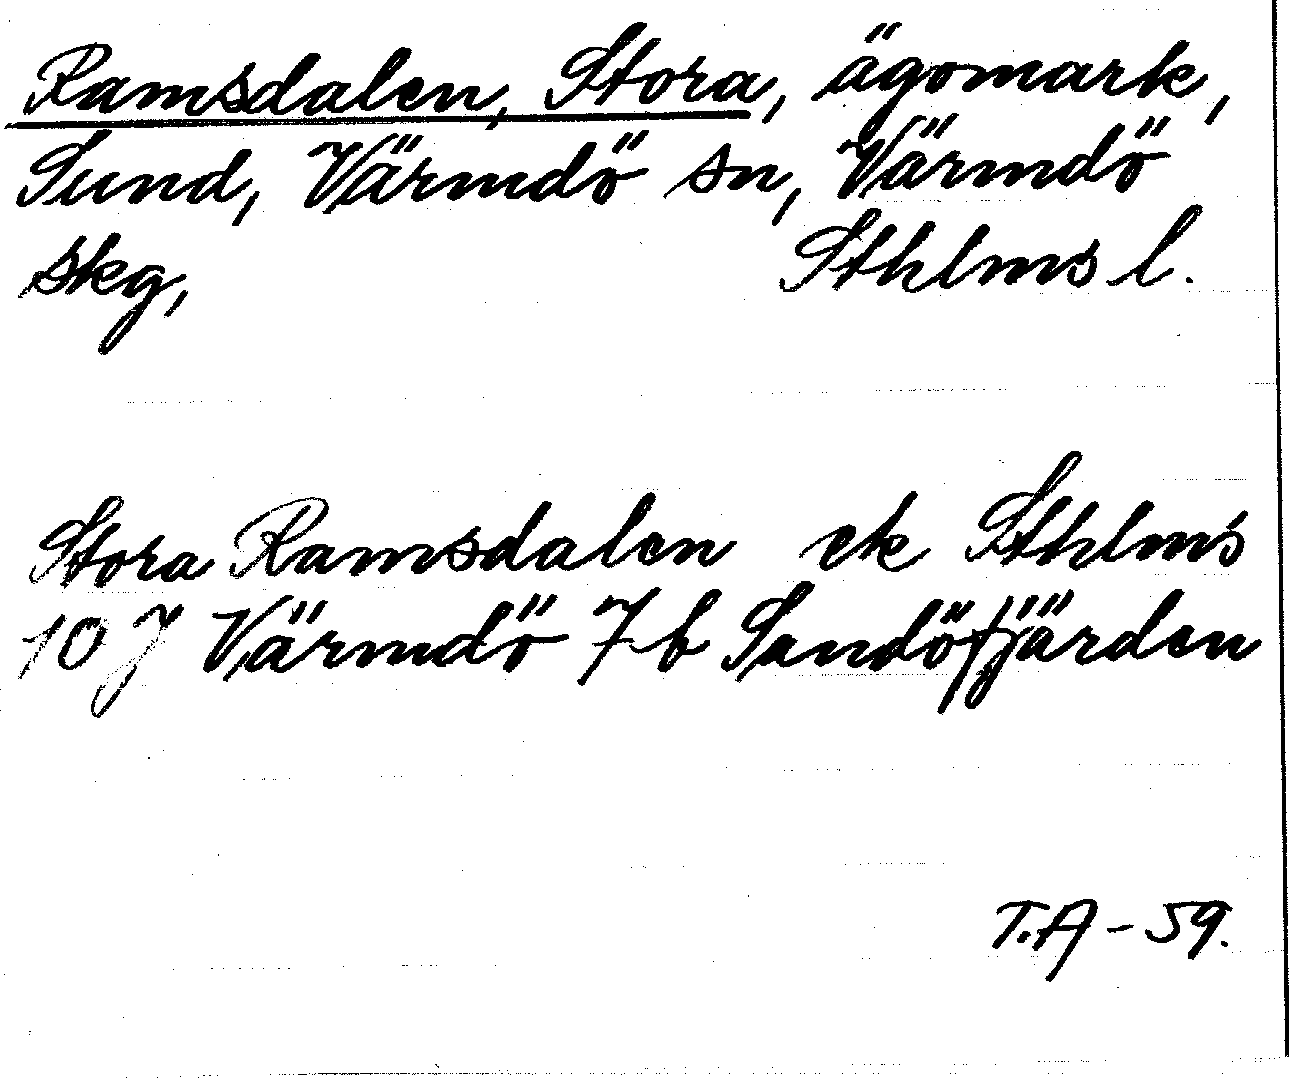 Ramsdalen, Stora, ägomark,
Sund, Värmdö sn, Värmdö
skg, Sthlms l.
Stora Ramsdalen ek Sthlms
10 J Värmdö 7 b Sandöfjärden
T.A - 59.